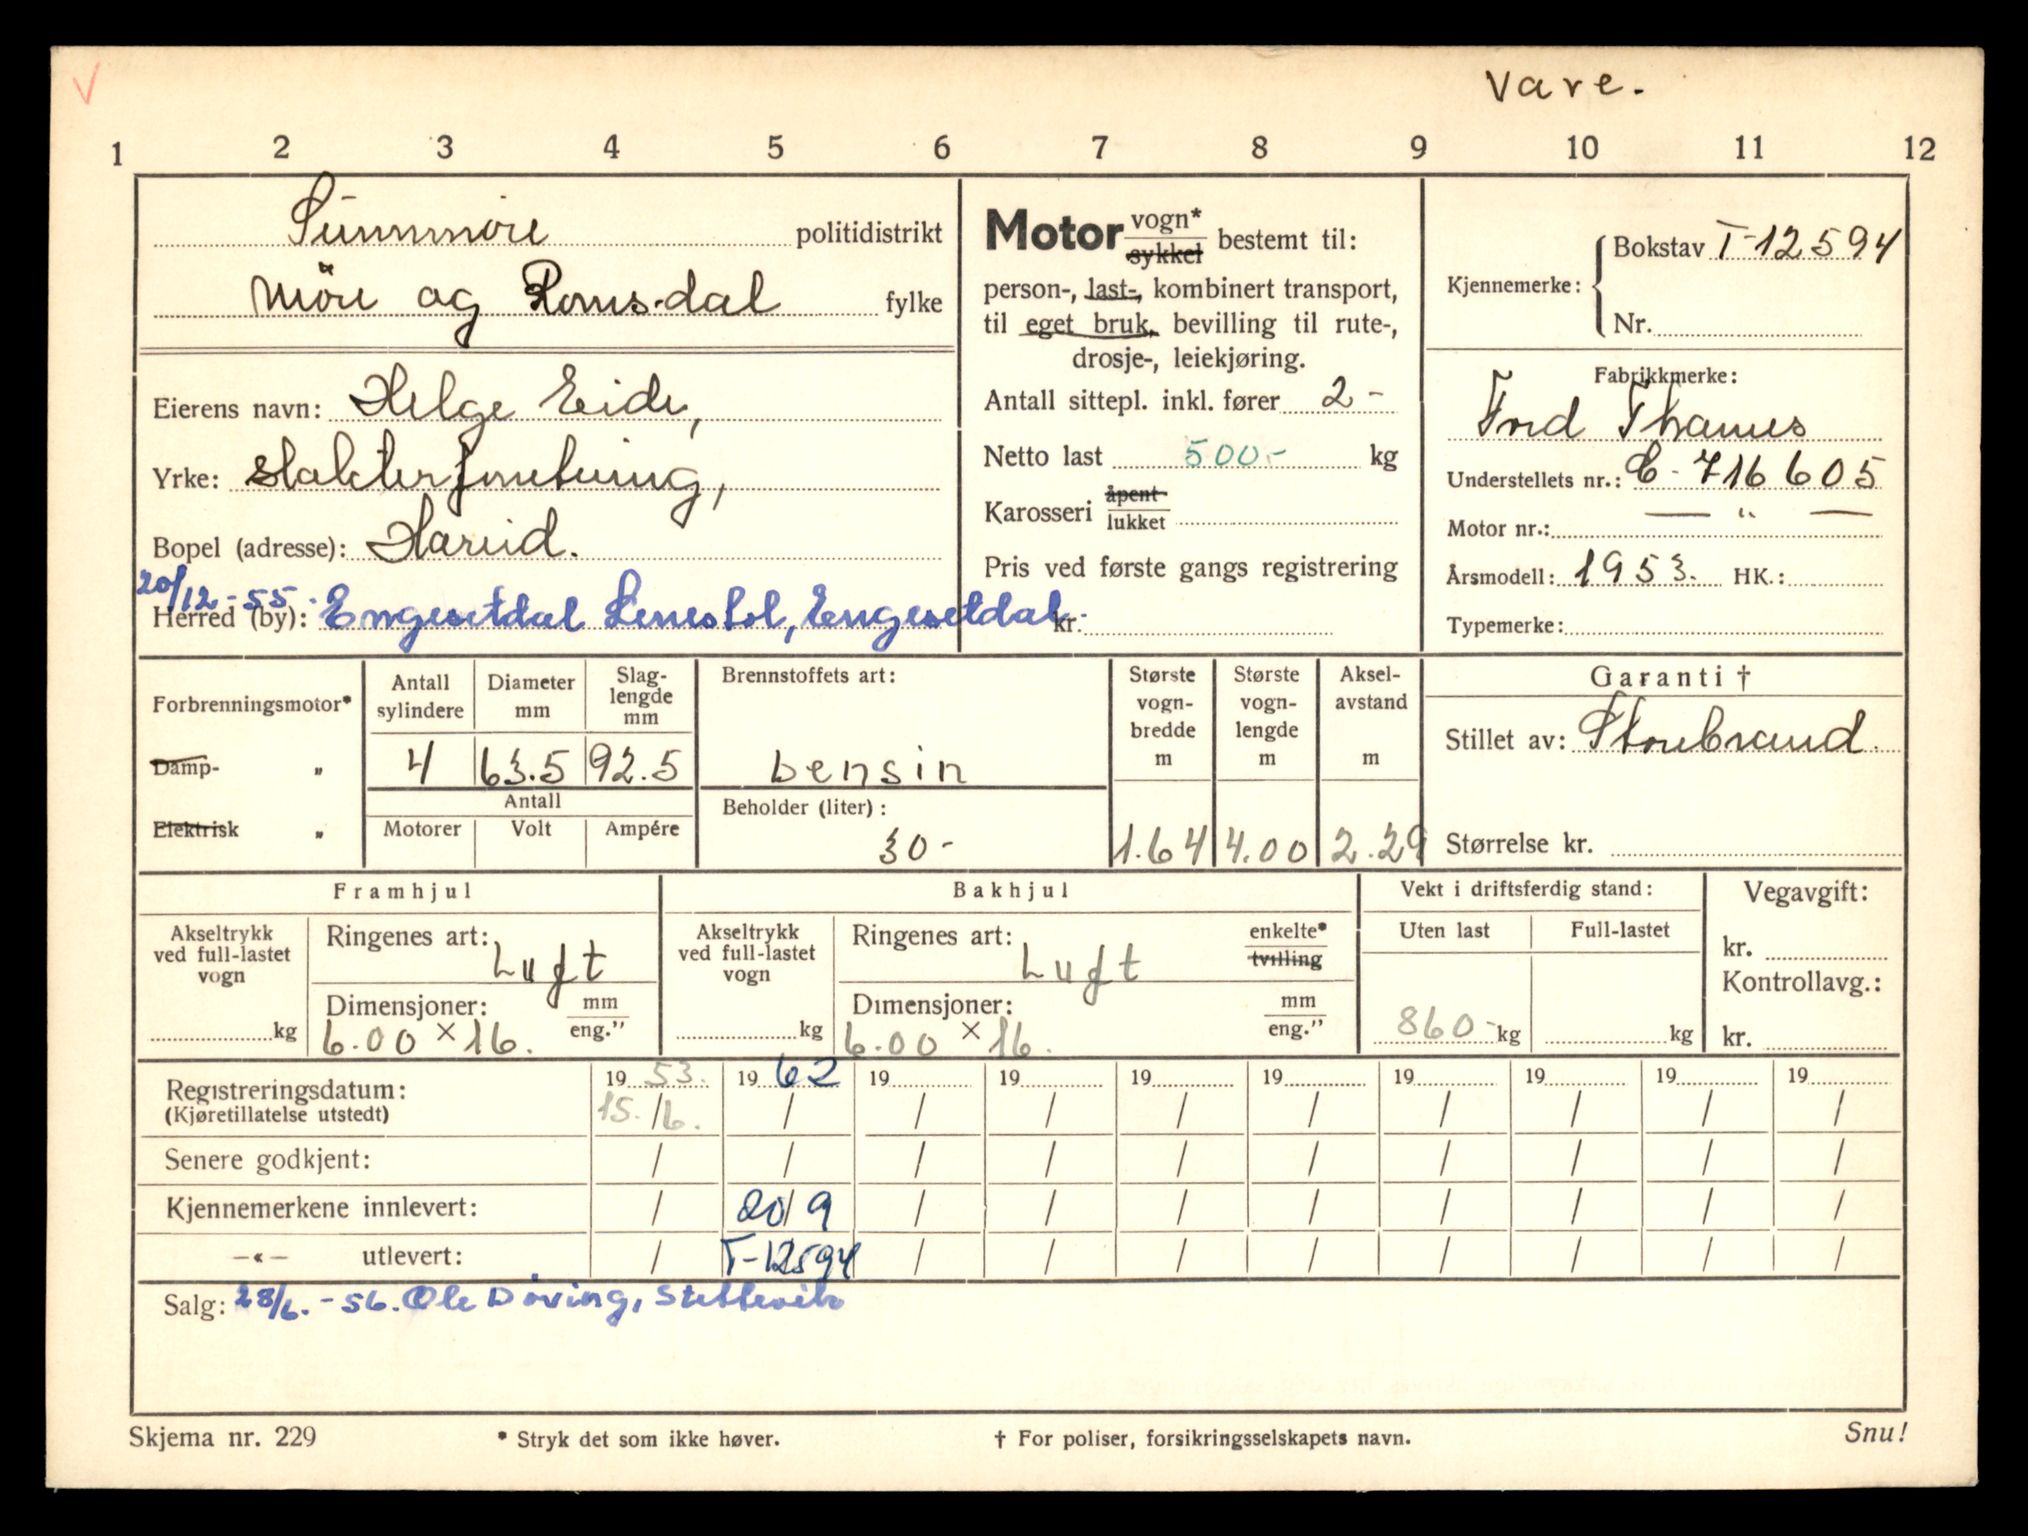 Vare.
1 2 3 4 5 6 7 8 9 10 11 12
Sunnmöre politidistrikt
Möre og Romsdal fylke
Eierens navn: Helge Eide,
Yrke: slakterforretning,
Bopel (adresse): Hareid.
20/12-55.
Herred (by): Engesetdal Lenestol, Engesetdal
Motor vogn* sykkel bestemt til:
person-, last-, kombinert transport,
til eget bruk, bevilling til rute-,
drosje-, leiekjøring.
Antall sittepl. inkl. fører 2-
Netto last 500.- kg
Karosseri åpent lukket
Pris ved første gangs registrering
kr.
Kjennemerke: Bokstav T-12594
Nr.
Fabrikkmerke:
Ford Thames
Understellets nr.: C-716605
Motor nr.: — " —
Årsmodell: 1953. HK.:
Typemerke:
Forbrenningsmotor*
Damp- "
Elektrisk "
Antall sylindere Diameter mm Slag-lengde mm
4 63.5 92.5
Antall
Motorer Volt Ampére
Brennstoffets art:
bensin
Beholder (liter):
30-
Største vogn-bredde m Største vogn-lengde m Aksel-avstand m
1.64 4.00 2.29
Garanti †
Stillet av: Storebrand
Størrelse kr.
Framhjul
Akseltrykk ved full-lastet vogn
kg
Ringenes art: Luft
Dimensjoner: mm eng."
6.00 × 16.
Bakhjul
Akseltrykk ved full-lastet vogn
kg
Ringenes art: Luft enkelte* tvilling
Dimensjoner: mm eng."
6.00 × 16.
Vekt i driftsferdig stand:
Uten last Full-lastet
860- kg kg
Vegavgift:
kr.
Kontrollavg.:
kr.
Registreringsdatum: 19 53. 19 62 19 19 19 19 19 19 19 19
(Kjøretillatelse utstedt) 15./6. / / / / / / / / /
Senere godkjent: / / / / / / / / / /
Kjennemerkene innlevert: / 20/9 / / / / / / / /
—«— utlevert: / T-12594 / / / / / / / /
Salg: 28/6.-56. Ole Döving, Stettevik
Skjema nr. 229 * Stryk det som ikke høver. † For poliser, forsikringsselskapets navn. Snu!